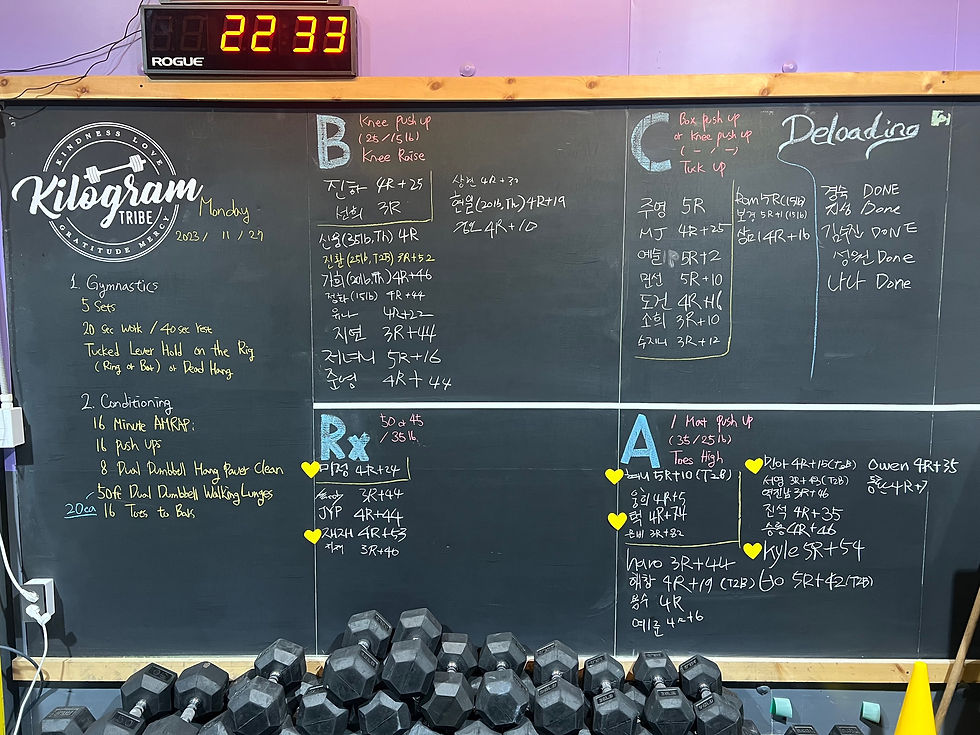 22 33
ROGUE
KINDNESS LOVE
Kilogram
TRIBE
GRATITUDE MERCY
Monday
2023 / 11 / 27
1. Gymnastics
5 Sets
20 sec work / 40 sec rest
Tucked Lever Hold on the Rig
(Ring or Bar) or Dead Hang
2. Conditioning
16 Minute AMRAP:
16 push ups
8 Dual Dumbbell Hang Power Clean
50ft Dual Dumbbell Walking Lunges
20ea
16 Toes to Bars
B
Knee push up
(25/15lb)
Knee Raise
진하 4R+25
선희 3R
신용(35lb,Th) 4R
진환(25lb,T2B) 3R+52
가희(20lb,Th) 4R+46
정화(15lb) 4R+44
유나 4R+22
지연 3R+44
저녀니 5R+16
준영 4R+44
4R+30
현일(20lb,Th)4R+19
4R+10
C
Box push up
or Knee push up
( - / - )
Tuck up
주영 5R
MJ 4R+25
예슬 5R+2
민선 5R+10
도건 4R+16
소희 3R+10
수지니 3R+12
5R(15lb)
보경 5R+1(15lb)
4R+16
Deloading
경숙 DONE
지상 Done
DONE
성원 Done
나나 Done
Rx
50 or 45
/ 35lb
미정 4R+24
3R+44
JYP 4R+44
재재 4R+53
3R+40
A
1 Mat push up
(35/25lb)
Toes High
5R+10(T2B)
웅희 4R+5
턱 4R+74
은비 3R+82
haro 3R+44
해창 4R+19 (T2B)
용수 4R
예준 4R+6
4R+15(T2B)
서영 3R+43(T2B)
3R+46
진석 4R+35
승룡 4R+46
Kyle 5R+54
5R+42(T2B)
Owen 4R+35
4R+7